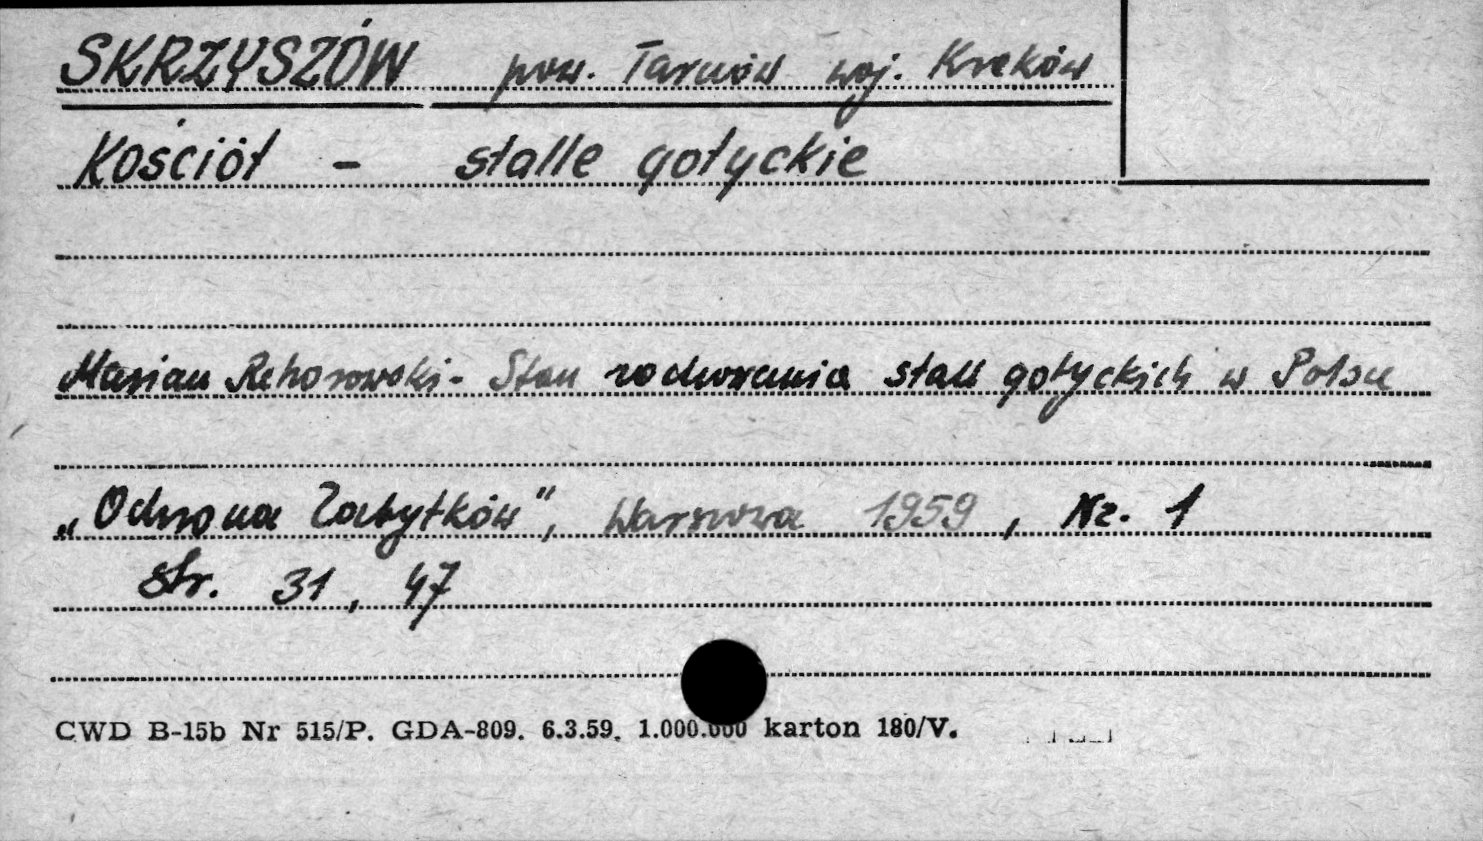 SKRZYSZÓW pow. Tarnów woj. Kraków
Kościół - stalle gotyckie
Marian Rehorowski - Stan zachowania stall gotyckich w Polsce
„Ochrona Zabytków", Warszawa 1959, Nr. 1
str. 31, 47
CWD B-15b Nr 515/P. GDA-809. 6.3.59. 1.000.000 karton 180/V.